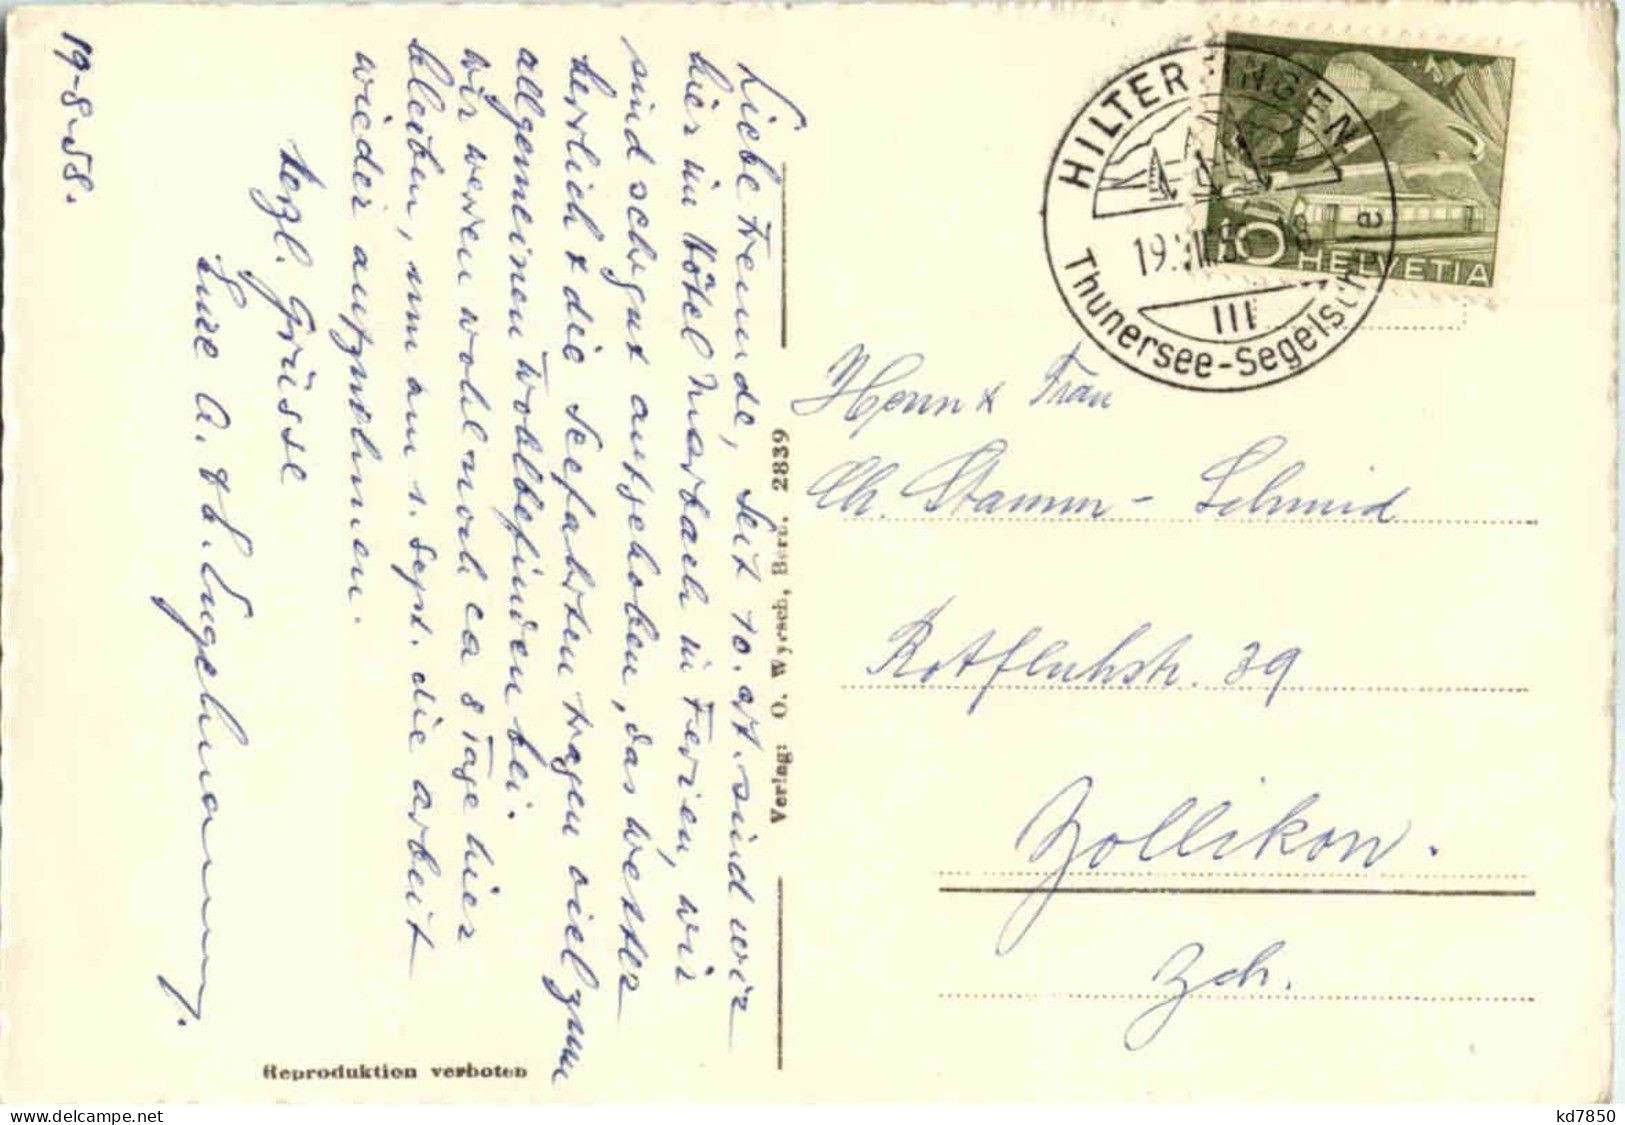 19-8-58.
Liebe Freunde, Seit 10. crt. sind wir
hier im Hôtel Marbach in Ferien, wir
sind sehr gut aufgehoben, das Wetter
herrlich & die Seefahrten tragen viel zum
allgemeinen Wohlbefinden bei.
Wir werden wohl noch ca 8 Tage hier
bleiben, um am 1. Sept. die Arbeit
wieder aufzunehmen.
Herzl. Grüsse
A. & L. Engelmann.
Reproduktion verboten
Verlag: O. Wyrsch, Bern. 2839
HILTERFINGEN
19.VIII.58
III
Thunersee-Segelschule
10
HELVETIA
Herrn & Frau
Ch. Stamm-Schmid
Rotfluhstr. 39
Zollikon.
Zch.
kd7850